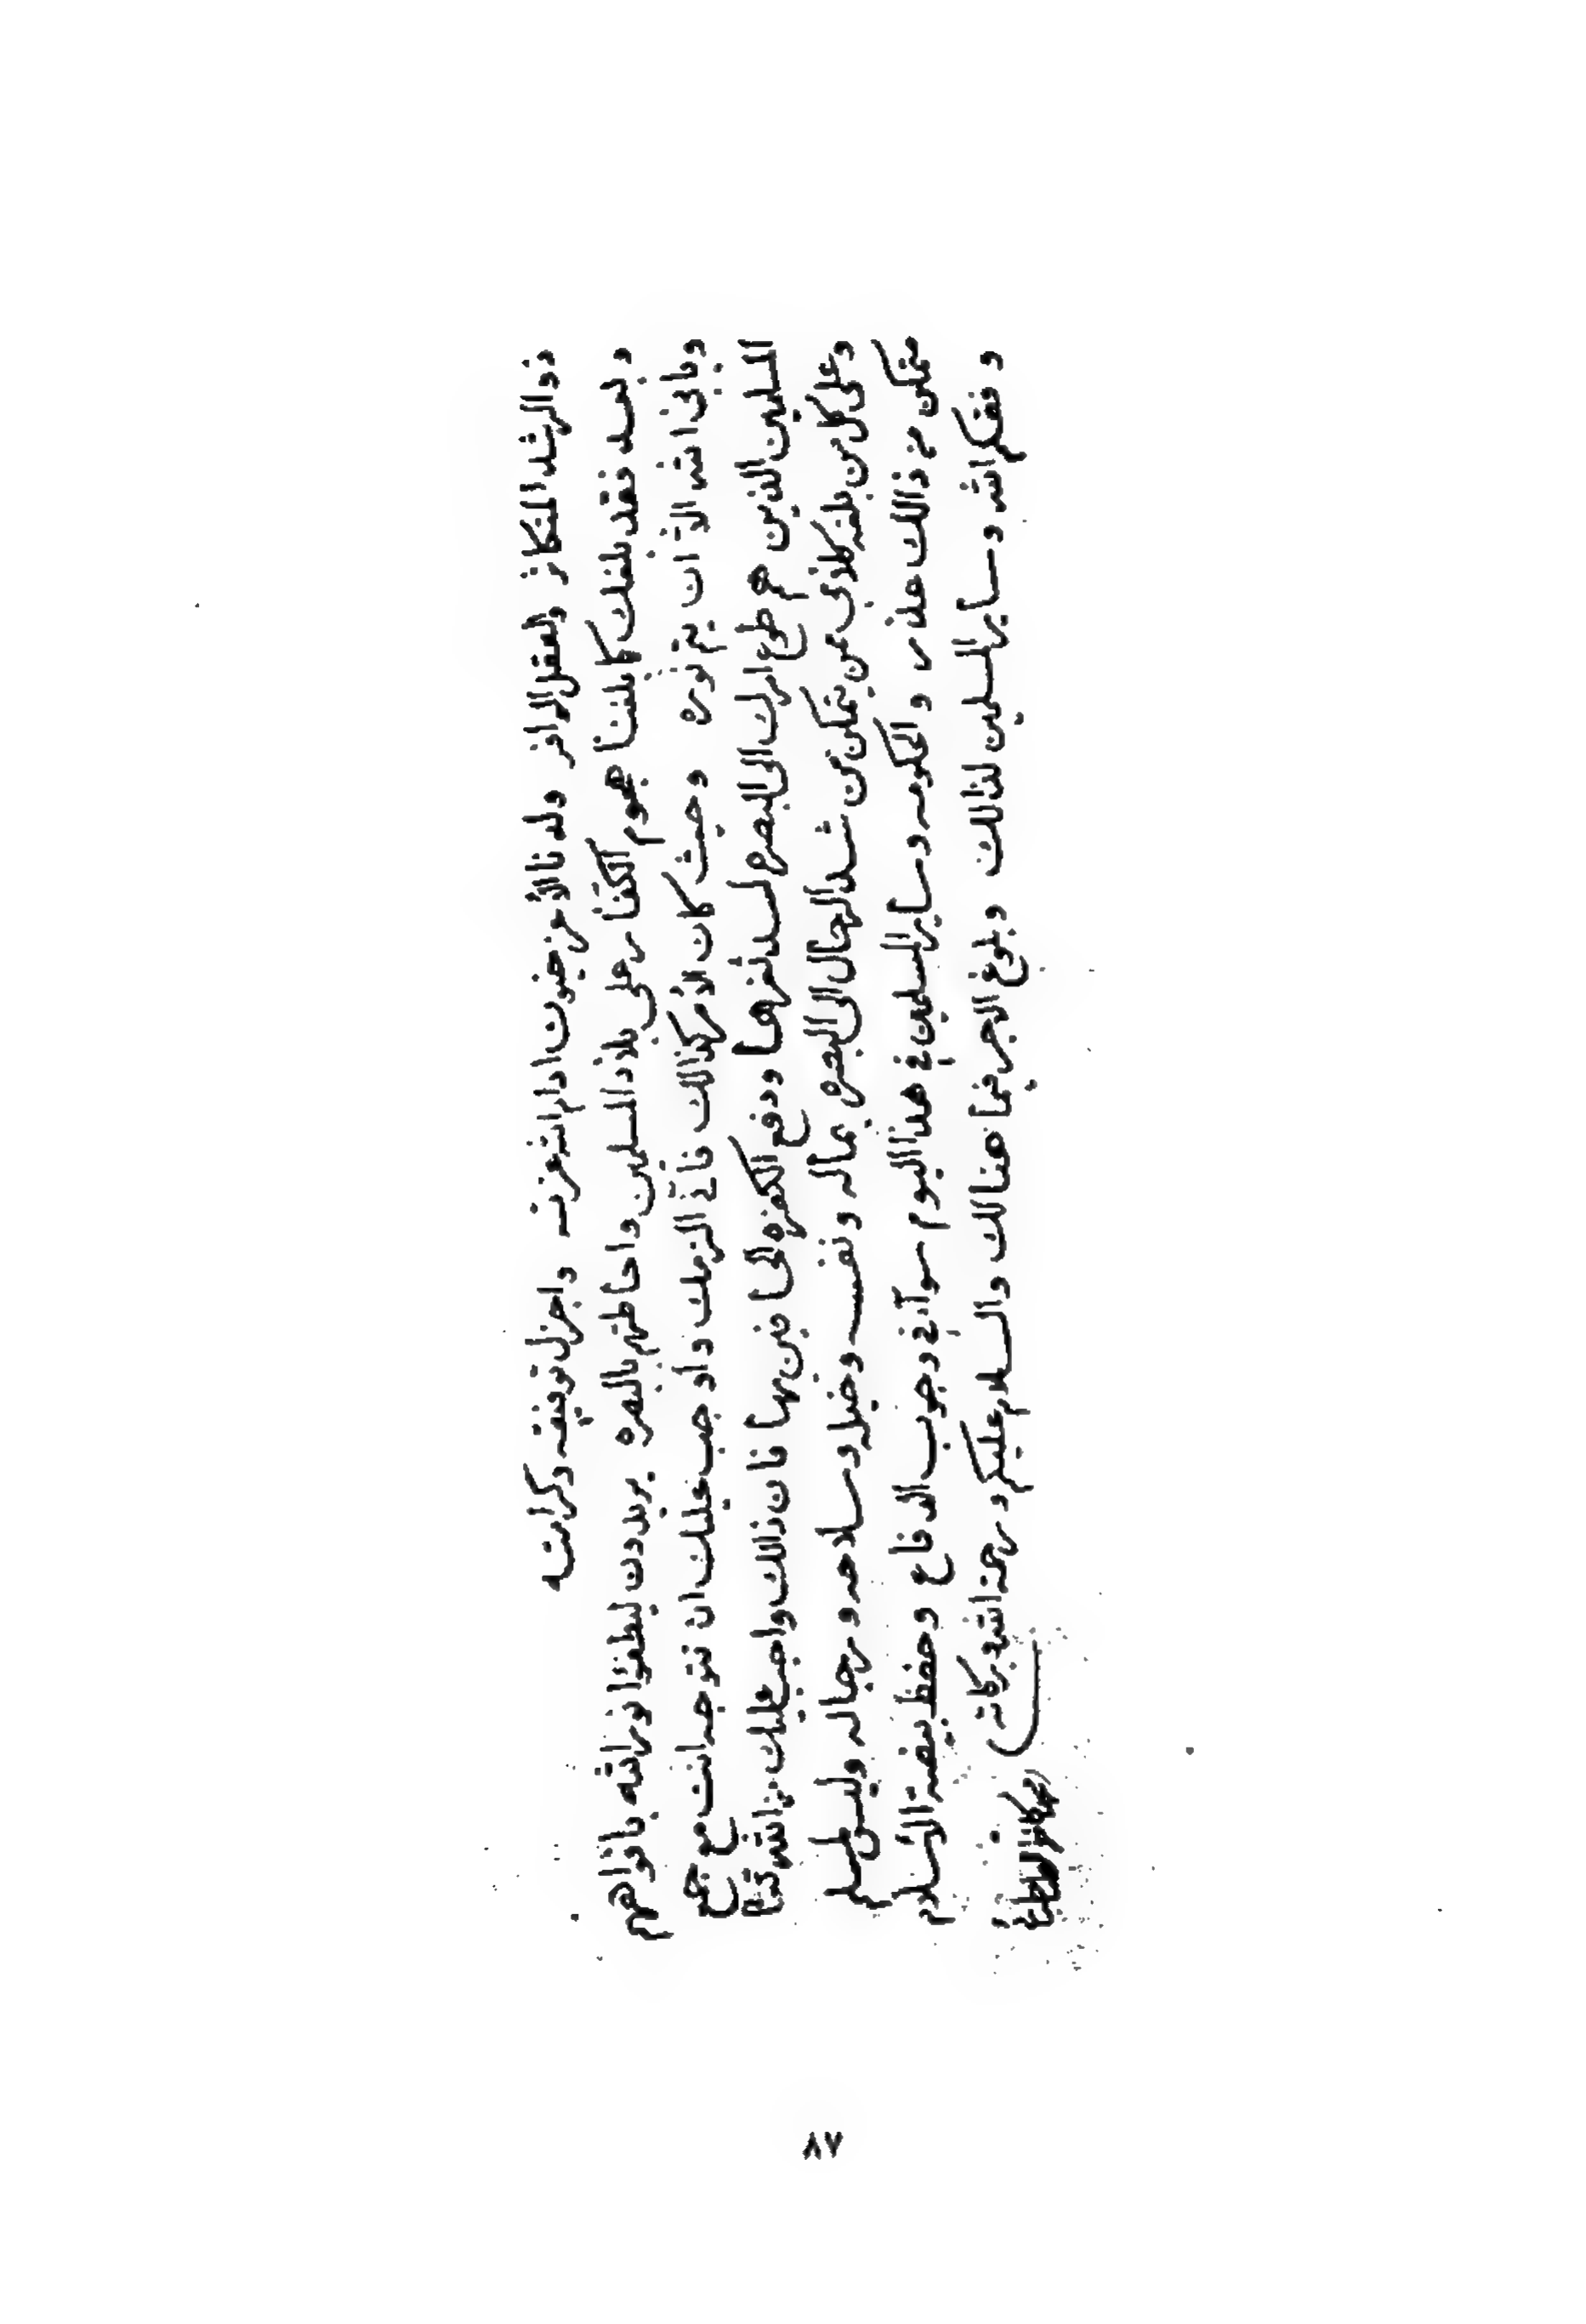 ذو الرشد المتكاثر والعقل الوافر ولدنا الأعز خيون ادام الله عزه واجزل توفيقه وكرامته
وبعد فقد بلغك كما بلغنا هجوم الكفار على بلاد المسلمين واحاطتهم بالبصره يريدون ليطفئوا نور الله بافواههم
ويأبى الله الا ان يتم نوره وحيث كان الأمر كذالك فأني الزمك واوجب عليك ان تتوجه انت مع جميع
المسلمين الذين هم طوع امرك الى البصره لسد ثغرها ودفع الكفره فيها عنها فان ذالك واجب عليك
وعلى كل من بلغه كلامي من يتمكن من شد الرحال الى البصره بماله ونفسه وخيله وسلاحه ورجاله
يتمكن من ذالك عذر والحكومه وساير المسلمين في هذا اليوم سواء في وجوب الدفاع وحفظ بيضة الاسلام
وفقكم الله وساير المسلمين لذالك وبلوغ الاجر فيما هنالك والسلام عليكم ورحمة الله وبركاته
محمد كاظم الطباطبائي
٨٧